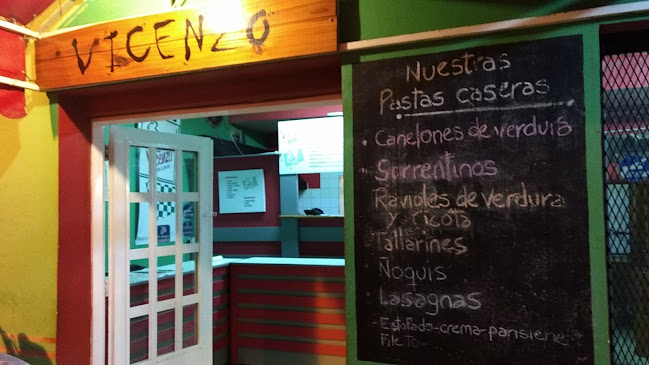 VICENZO
Nuestras
Pastas caseras
• Canelones de verdura
• Sorrentinos
Ravioles de verdura
y ricota
Tallarines
• Ñoquis
• Lasagnas
- Estofado - crema - parisiene
Fileto -